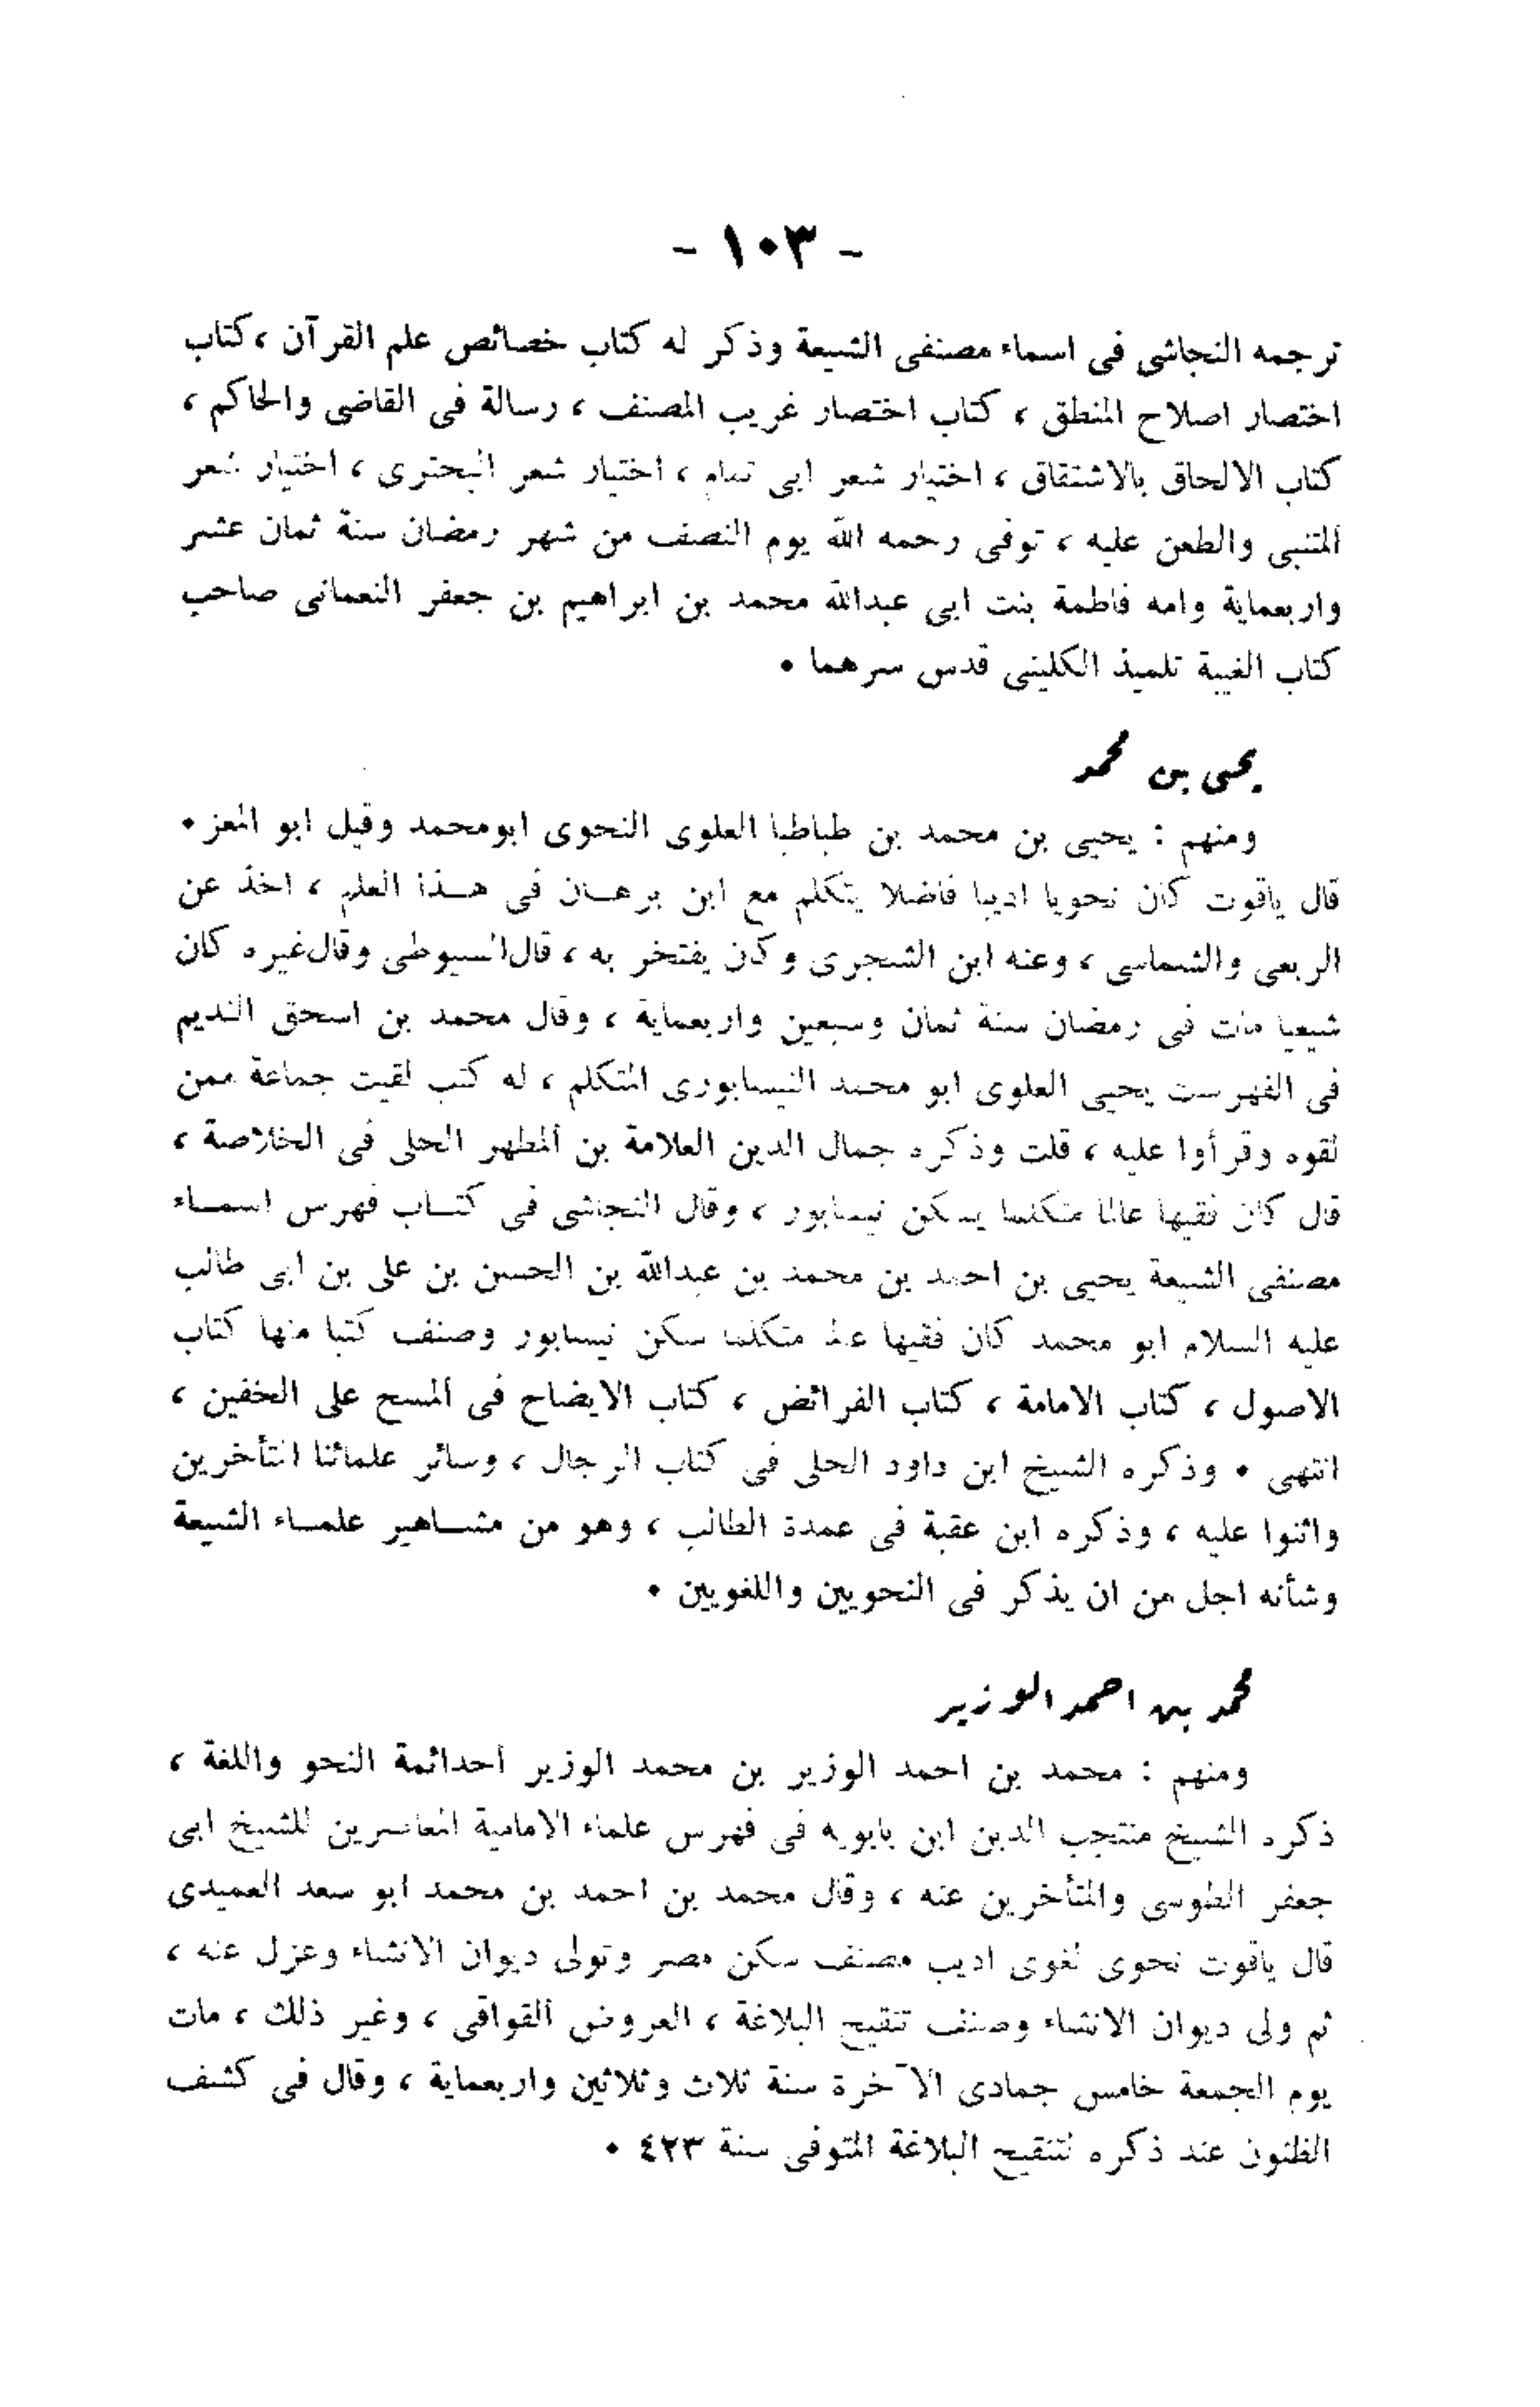 - ١٠٣ -
ترجمه النجاشى فى اسماء مصنفى الشيعة وذكر له كتاب خصائص علم القرآن ، كتاب
اختصار اصلاح المنطق ، كتاب اختصار غريب المصنف ، رسالة فى القاضى والحاكم ،
كتاب الالحاق بالاشتقاق ، اختيار شعر ابى تمام ، اختيار شعر البحترى ، اختيار شعر
المتنبى والطعن عليه ، توفى رحمه الله يوم النصف من شهر رمضان سنة ثمان عشر
واربعماية وامه فاطمة بنت ابى عبدالله محمد بن ابراهيم بن جعفر النعمانى صاحب
كتاب الغيبة تلميذ الكلينى قدس سرهما •
يحيى بن محمد
ومنهم : يحيى بن محمد بن طباطبا العلوى النحوى ابومحمد وقيل ابو المعز •
قال ياقوت كان نحويا اديبا فاضلا يتكلم مع ابن برهان فى هذا العلم ، اخذ عن
الربعى والشماسى ، وعنه ابن الشجرى وكان يفتخر به ، قال السيوطى وقال غيره كان
شيعيا مات فى رمضان سنة ثمان وسبعين واربعماية ، وقال محمد بن اسحق النديم
فى الفهرست يحيى العلوى ابو محمد النيسابورى المتكلم ، له كتب لقيت جماعة ممن
لقوه وقرأوا عليه ، قلت وذكره جمال الدين العلامة بن المطهر الحلى فى الخلاصة ،
قال كان فقيها عالما متكلما يسكن نيسابور ، وقال النجاشى فى كتاب فهرس اسماء
مصنفى الشيعة يحيى بن احمد بن محمد بن عبدالله بن الحسن بن على بن ابى طالب
عليه السلام ابو محمد كان فقيها عالما متكلما سكن نيسابور وصنف كتبا منها كتاب
الاصول ، كتاب الامامة ، كتاب الفرائض ، كتاب الايضاح فى المسح على الخفين ،
انتهى • وذكره الشيخ ابن داود الحلى فى كتاب الرجال ، وسائر علمائنا المتأخرين
واثنوا عليه ، وذكره ابن عقبة فى عمدة الطالب ، وهو من مشاهير علماء الشيعة
وشأنه اجل من ان يذكر فى النحويين واللغويين •
محمد بن احمد الوزير
ومنهم : محمد بن احمد الوزير بن محمد الوزير احدائمة النحو واللغة ،
ذكره الشيخ منتجب الدين ابن بابويه فى فهرس علماء الامامية المعاصرين للشيخ ابى
جعفر الطوسى والمتأخرين عنه ، وقال محمد بن احمد بن محمد ابو سعد العميدى
قال ياقوت نحوى لغوى اديب مصنف سكن مصر وتولى ديوان الانشاء وعزل عنه ،
ثم ولى ديوان الانشاء وصنف تنقيح البلاغة ، العروض القوافى ، وغير ذلك ، مات
يوم الجمعة خامس جمادى الآخرة سنة ثلاث وثلاثين واربعماية ، وقال فى كشف
الظنون عند ذكره لتنقيح البلاغة المتوفى سنة ٤٢٣ •